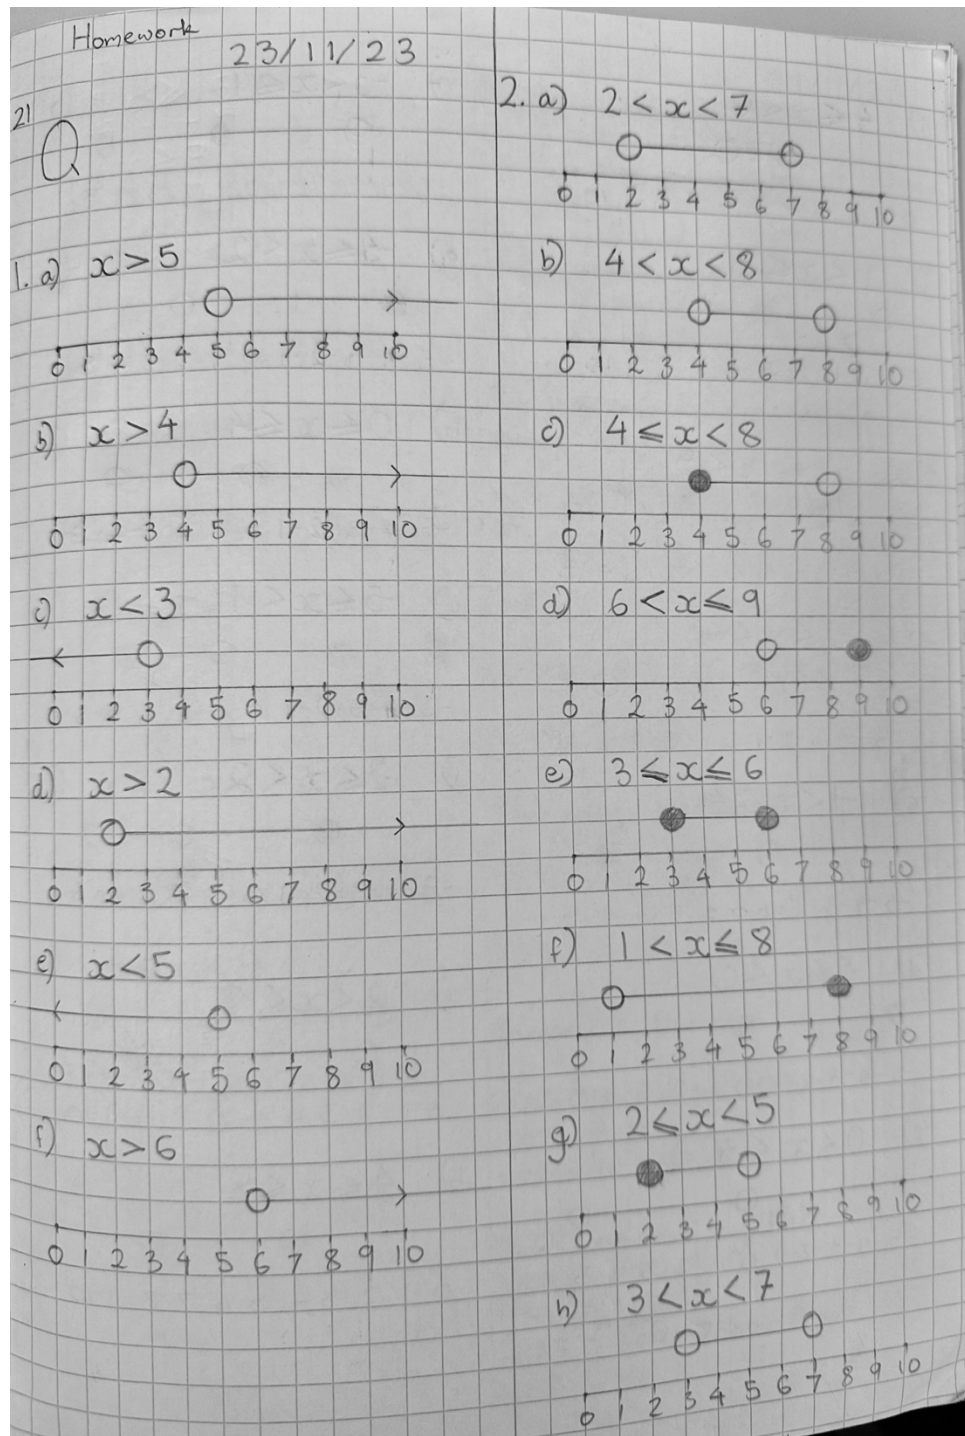 Homework
23/11/23
21
Q
1. a) x > 5
0 1 2 3 4 5 6 7 8 9 10
b) x > 4
0 1 2 3 4 5 6 7 8 9 10
c) x < 3
0 1 2 3 4 5 6 7 8 9 10
d) x > 2
0 1 2 3 4 5 6 7 8 9 10
e) x < 5
0 1 2 3 4 5 6 7 8 9 10
f) x > 6
0 1 2 3 4 5 6 7 8 9 10
2. a) 2 < x < 7
0 1 2 3 4 5 6 7 8 9 10
b) 4 < x < 8
0 1 2 3 4 5 6 7 8 9 10
c) 4 ≤ x < 8
0 1 2 3 4 5 6 7 8 9 10
d) 6 < x ≤ 9
0 1 2 3 4 5 6 7 8 9 10
e) 3 ≤ x ≤ 6
0 1 2 3 4 5 6 7 8 9 10
f) 1 < x ≤ 8
0 1 2 3 4 5 6 7 8 9 10
g) 2 ≤ x < 5
0 1 2 3 4 5 6 7 8 9 10
h) 3 < x < 7
0 1 2 3 4 5 6 7 8 9 10